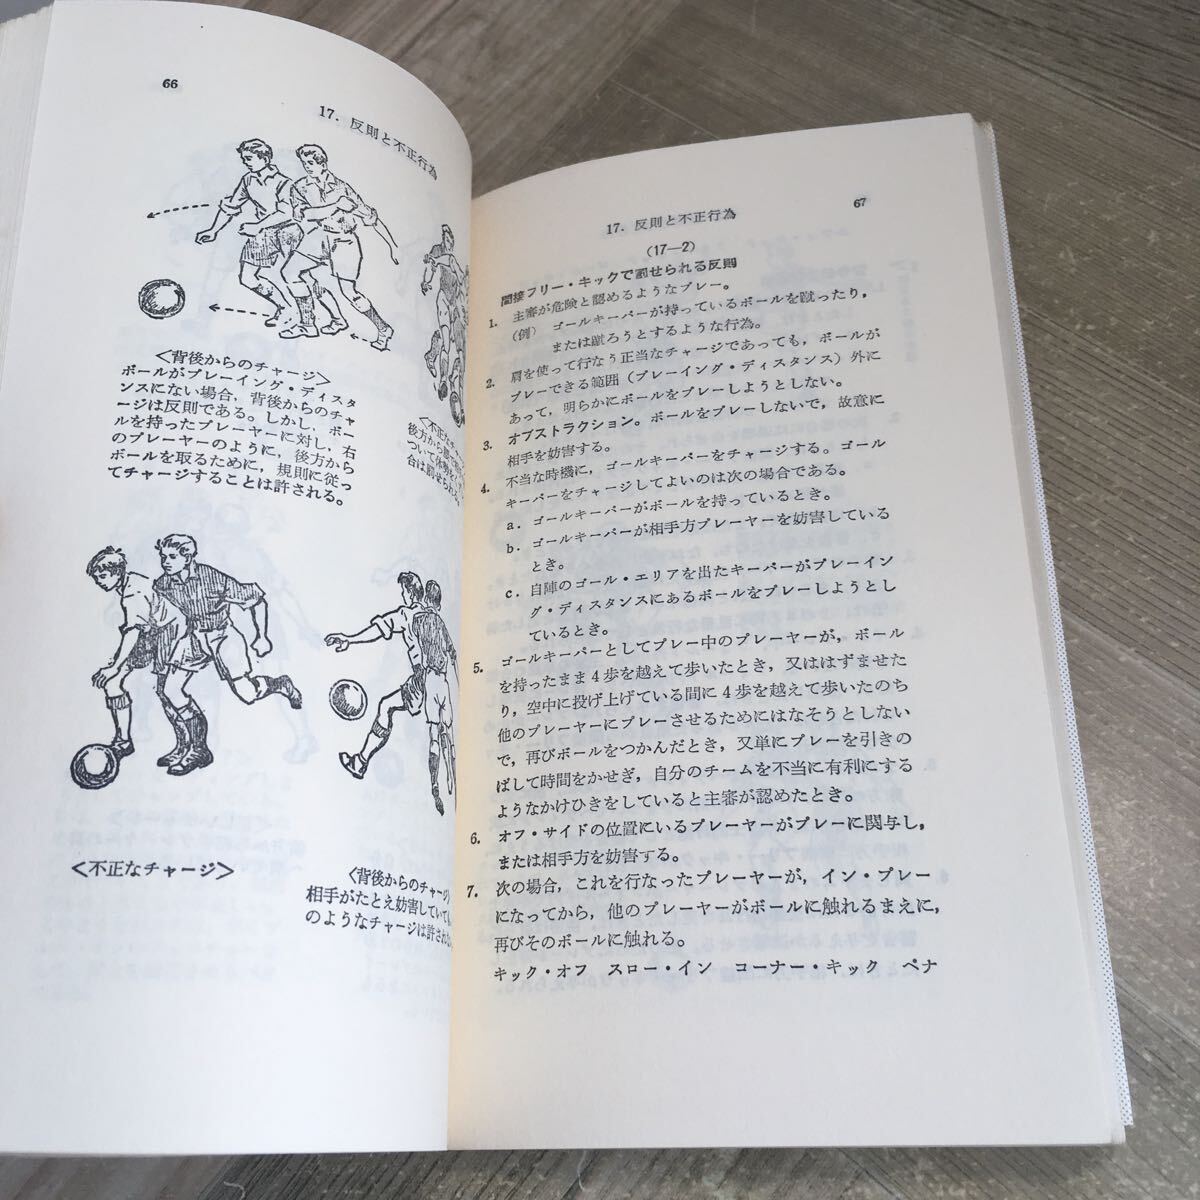 66
17. 反則と不正行為
<背後からのチャージ>
ボールがプレーイング・ディスタ
ンスにない場合,背後からのチャ
ージは反則である。しかし,ボー
ルを持ったプレーヤーに対し,右
のプレーヤーのように,後方から
ボールを取るために,規則に従っ
てチャージすることは許される。
<不正なチャー
後方から
ついて
合は罰せられる。
<不正なチャージ>
<背後からのチャージ>
相手がたとえ妨害していても
のようなチャージは許され
67
17. 反則と不正行為
(17—2)
間接フリー・キックで罰せられる反則
1. 主審が危険と認めるようなプレー。
(例) ゴールキーパーが持っているボールを蹴ったり,
または蹴ろうとするような行為。
2. 肩を使って行なう正当なチャージであっても,ボールが
プレーできる範囲(プレーイング・ディスタンス)外に
あって,明らかにボールをプレーしようとしない。
3. オブストラクション。ボールをプレーしないで,故意に
相手を妨害する。
4. 不当な時機に,ゴールキーパーをチャージする。ゴール
キーパーをチャージしてよいのは次の場合である。
a. ゴールキーパーがボールを持っているとき。
b. ゴールキーパーが相手方プレーヤーを妨害している
とき。
c. 自陣のゴール・エリアを出たキーパーがプレーイン
グ・ディスタンスにあるボールをプレーしようとし
ているとき。
5. ゴールキーパーとしてプレー中のプレーヤーが,ボール
を持ったまま4歩を越えて歩いたとき,又ははずませた
り,空中に投げ上げている間に4歩を越えて歩いたのち
他のプレーヤーにプレーさせるためにはなそうとしない
で,再びボールをつかんだとき,又単にプレーを引きの
ばして時間をかせぎ,自分のチームを不当に有利にする
ようなかけひきをしていると主審が認めたとき。
6. オフ・サイドの位置にいるプレーヤーがプレーに関与し,
または相手方を妨害する。
7. 次の場合,これを行なったプレーヤーが,イン・プレー
になってから,他のプレーヤーがボールに触れるまえに,
再びそのボールに触れる。
キック・オフ スロー・イン コーナー・キック ペナ